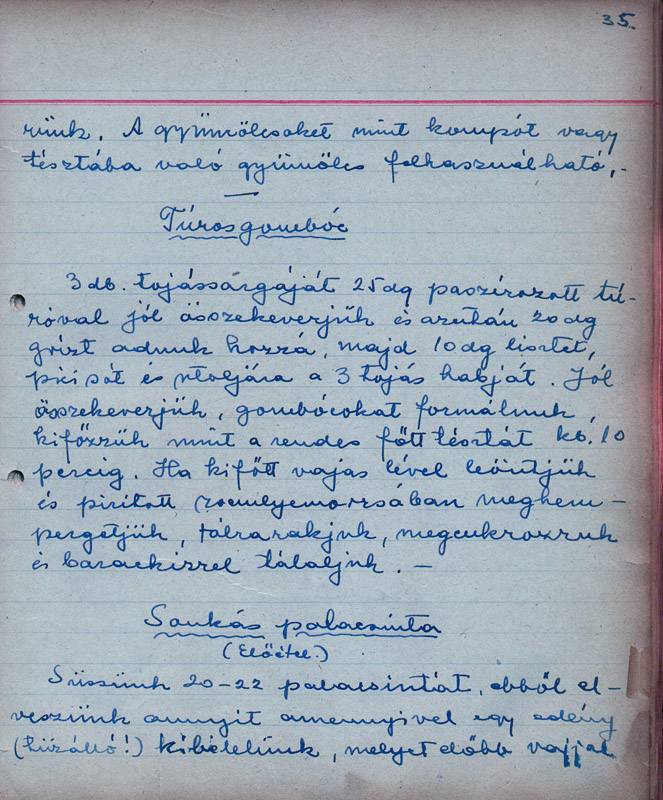 35.
rünk. A gyümölcsöket mint kompót vagy
tésztába való gyümölcs felhasználható,-
Túrósgombóc
3 db. tojássárgáját 25 dg paszírozott tú-
róval jól összekeverjük és azután 20 dg
grízt adunk hozzá, majd 10 dg lisztet,
pici sót és utoljára a 3 tojás habját. Jól
összekeverjük, gombócokat formálunk,
kifőzzük mint a rendes főtt tésztát kb. 10
percig. Ha kifőtt vajas lével leöntjük
és pirított zsemlyemorzsában meghem-
pergetjük, tálra rakjuk, megcukrozzuk
és barackízzel tálaljuk. —
Sonkás palacsinta
(Előétel.)
Süssünk 20-22 palacsintát, ebből el-
veszünk annyit amennyivel egy edény
(tűzálló!) kibélelünk, melyet előbb vajjal